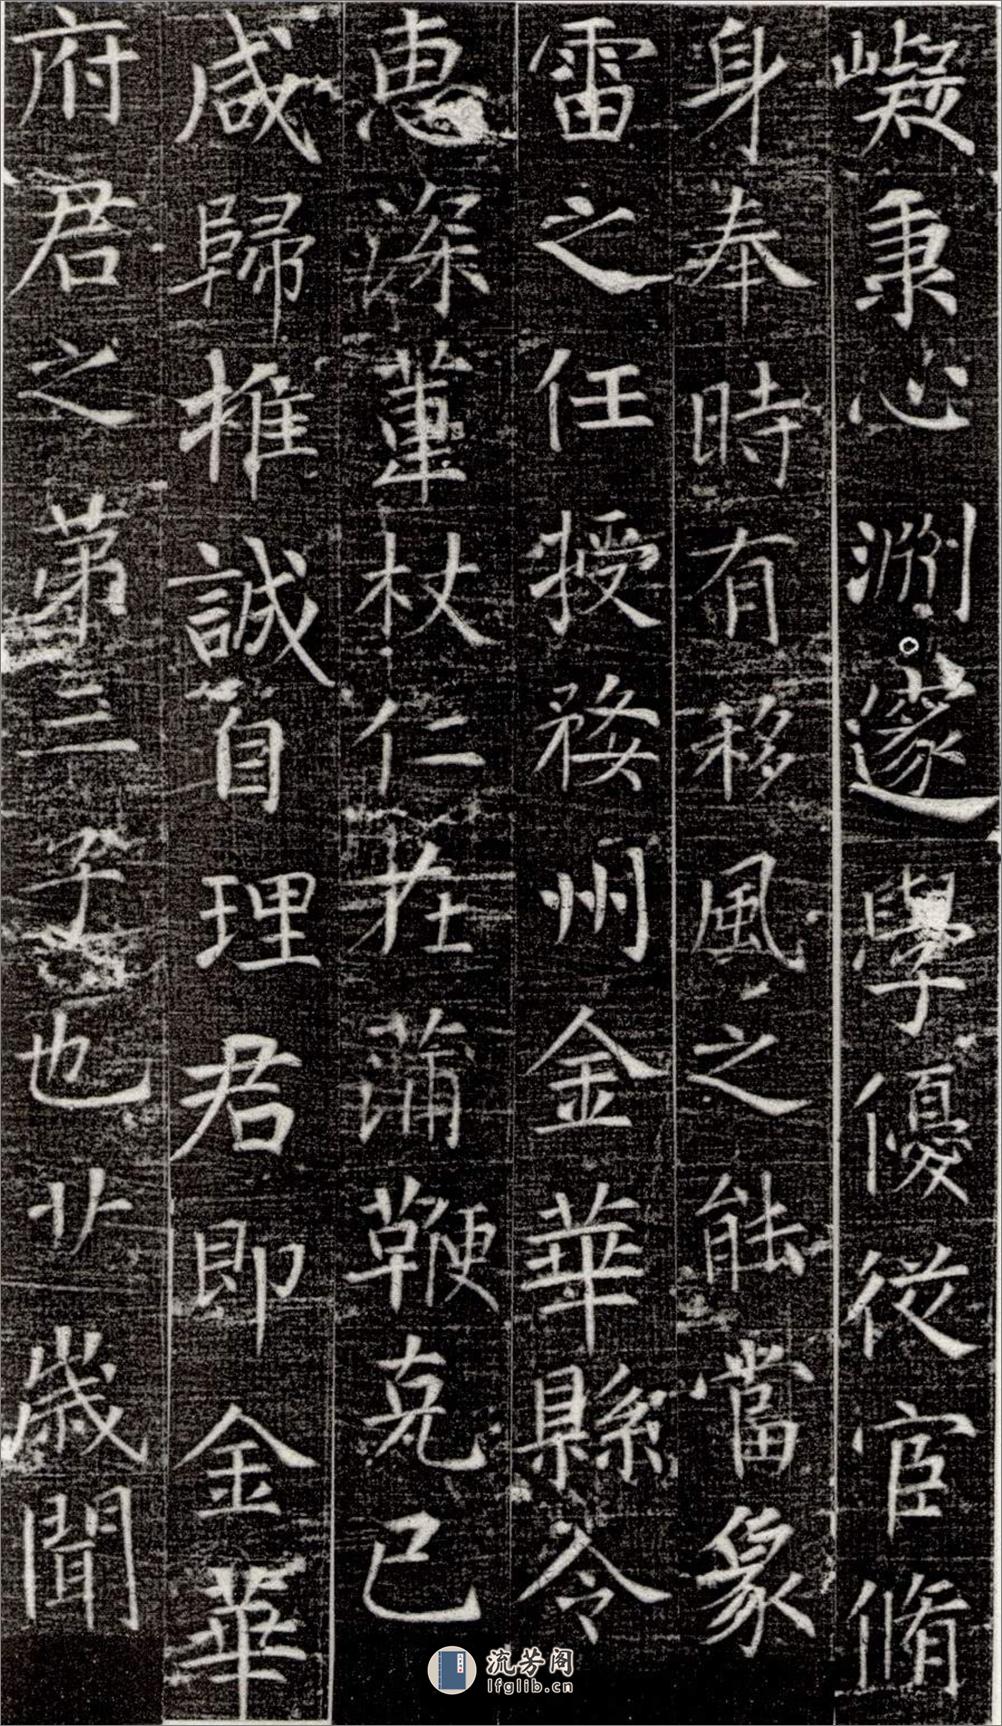 嶷秉心渊邃學優從宦脩
身奉時有移風之能當象
雷之任授婺州金華縣令
惠深薫杖仁在蒲鞭克己
咸歸推誠自理君即金華
府君之第三子也廿歲聞
流芳阁
lfglib.cn